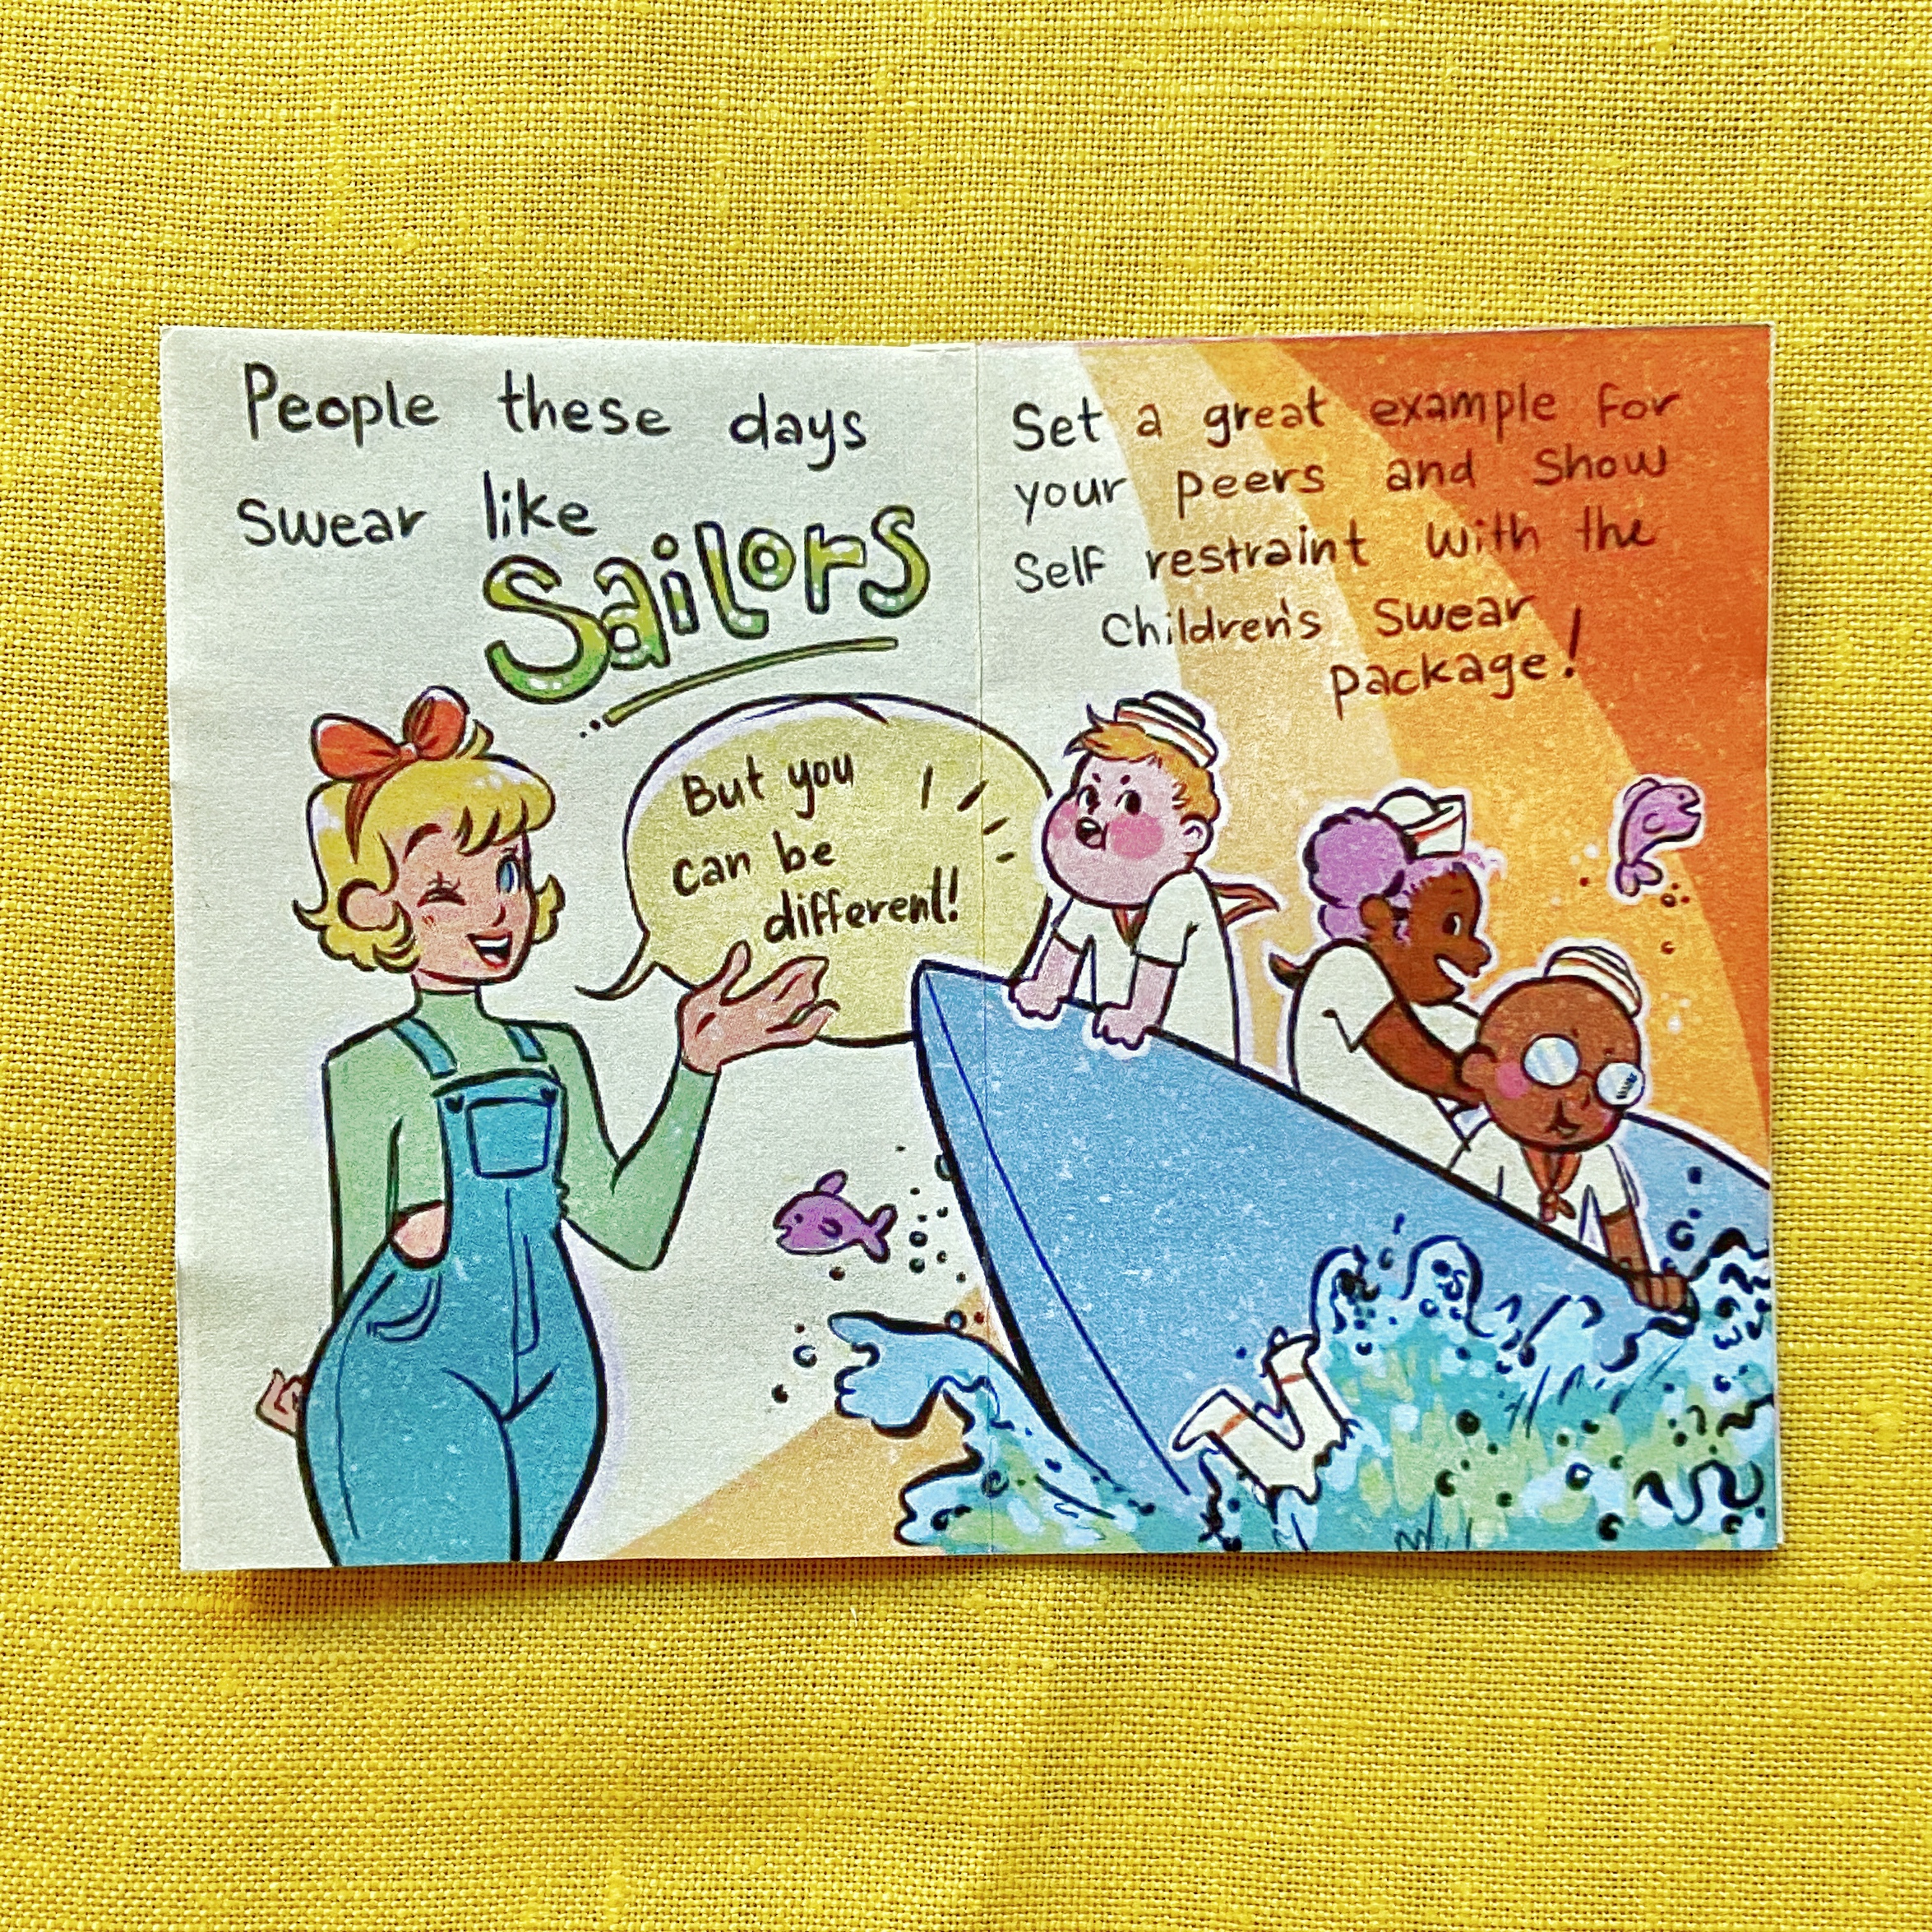 People these days
swear like
Sailors
But you
can be
different!
Set a great example for
your peers and show
self restraint with the
Children's swear
package!